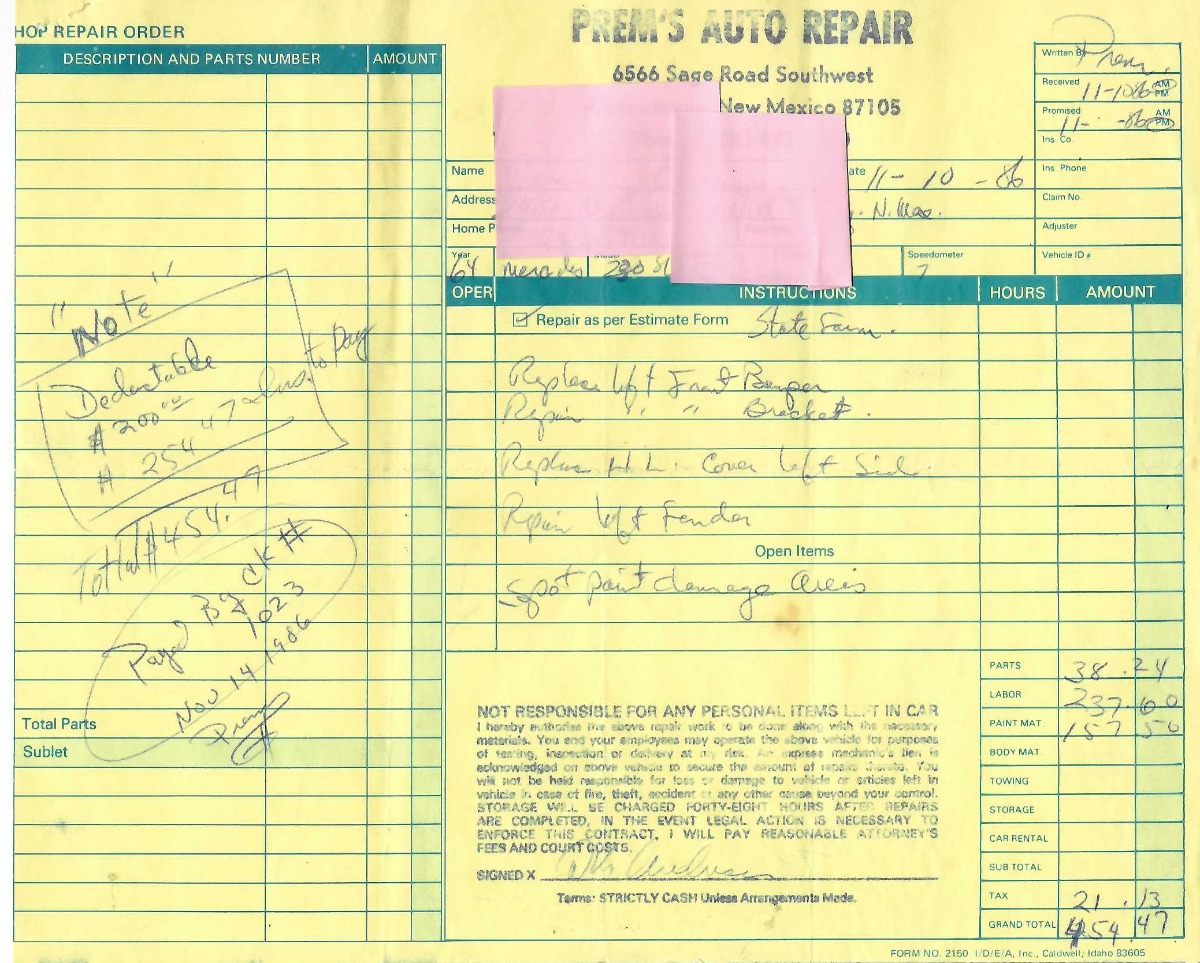 HOP REPAIR ORDER
DESCRIPTION AND PARTS NUMBER
AMOUNT
PREM'S AUTO REPAIR
6566 Sage Road Southwest
New Mexico 87105
Written By Prem
Received 11-10-86 AM PM
Promised 11- -86 AM PM
Ins. Co.
Name
ate 11-10-86
Ins. Phone
Address
N. Mex.
Claim No.
Home P
Adjuster
Year 64 Mercedes 230 SL
Speedometer ?
Vehicle ID #
OPER INSTRUCTIONS HOURS AMOUNT
Repair as per Estimate Form State Farm.
Replace left Front Bumper
Repair " " Bracket.
Replace H L. Cover left Side.
Repair left Fender
Open Items
Spot paint damage areas
"Note"
Deductable
$ 200.00
$ 254.47 Ins. to pay
Total $ 454.47
Payed By CK #
1023
Nov 14 1986
Prem
Total Parts
Sublet
NOT RESPONSIBLE FOR ANY PERSONAL ITEMS LEFT IN CAR
I hereby authorize the above repair work to be done along with the necessary
materials. You and your employees may operate the above vehicle for purposes
of testing, inspection or delivery at my risk. An express mechanic's lien is
acknowledged on above vehicle to secure the amount of repairs thereto. You
will not be held responsible for loss or damage to vehicle or articles left in
vehicle in case of fire, theft, accident or any other cause beyond your control.
STORAGE WILL BE CHARGED FORTY-EIGHT HOURS AFTER REPAIRS
ARE COMPLETED, IN THE EVENT LEGAL ACTION IS NECESSARY TO
ENFORCE THIS CONTRACT, I WILL PAY REASONABLE ATTORNEY'S
FEES AND COURT COSTS.
SIGNED X
Terms: STRICTLY CASH Unless Arrangements Made.
PARTS 38.24
LABOR 237.60
PAINT MAT. 157.50
BODY MAT.
TOWING
STORAGE
CAR RENTAL
SUB TOTAL
TAX 21.13
GRAND TOTAL 454.47
FORM NO. 2150 I/D/E/A, Inc., Caldwell, Idaho 83605